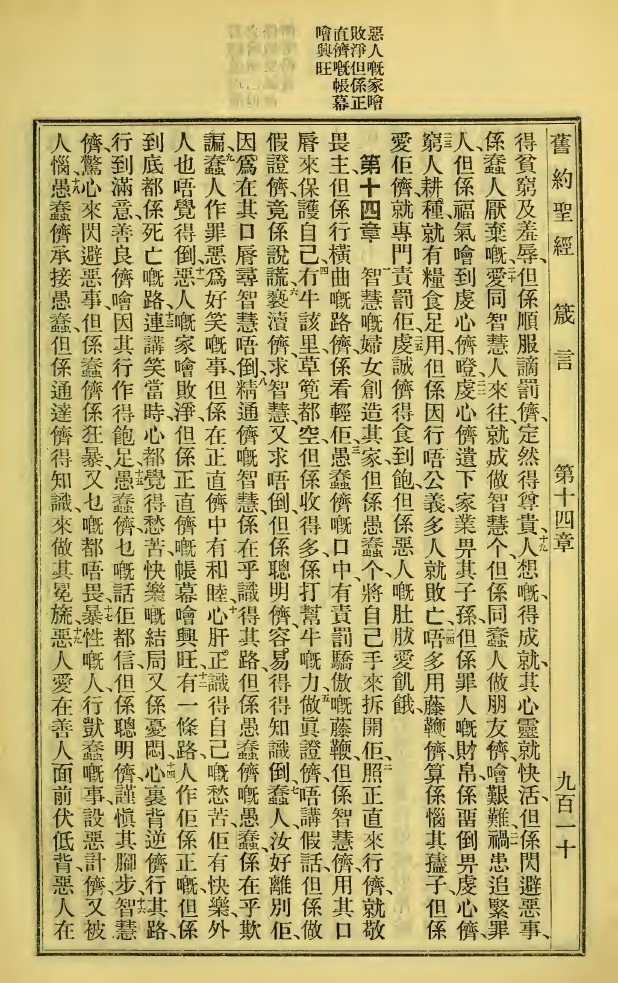 惡人嘅家噲
敗淨但係正
直儕嘅帳幕
噲興旺
舊約聖經 箴言 第十四章 九百一十
得貧窮及羞辱、但係順服讁罰儕、定然得尊貴、十九人想嘅得成就、其心靈就快活、但係閃避惡事、
係蠢人厭棄嘅、二十愛同智慧人來往、就成做智慧个、但係同蠢人做朋友儕、噲艱難、二一禍患追緊罪
人、但係福氣噲到虔心儕、二二虔心儕遺下家業畀其子孫、但係罪人嘅財帛、係畱倒畀虔心儕、
二三窮人耕種就有糧食足用、但係因行唔公義、多人就敗亡、二四唔多用藤鞭儕、算係惱其孻子、但係
愛佢儕、就專門責罰佢、二五虔誠儕得食到飽、但係惡人嘅肚肷愛飢餓、
第十四章 一智慧嘅婦女創造其家、但係愚蠢个將自己手來拆開佢、二照正直來行儕、就敬
畏主、但係行橫曲嘅路儕、係看輕佢、三愚蠢儕嘅口中、有責罰驕傲嘅藤鞭、但係智慧儕、用其口
脣來保護自己、四冇牛該里、草篼都空、但係收得多、係打幫牛嘅力、五做眞證儕、唔講假話、但係做
假證儕、竟係說謊、六褻瀆儕、求智慧、又求唔倒、但係聰明儕、容易得得知識倒、七蠢人汝好離別佢、
因爲在其口脣尋智慧唔倒、八精通儕嘅智慧、係在乎識得其路、但係愚蠢儕嘅愚蠢、係在乎欺
騙、九蠢人作罪惡爲好笑嘅事、但係在正直儕中有和睦、十心肝正識得自己嘅愁苦、佢有快樂、外
人也唔覺得倒、十一惡人嘅家噲敗淨、但係正直儕嘅帳幕噲興旺、十二有一條路、人作佢係正嘅、但係
到底都係死亡嘅路、十三連講笑當時、心都覺得愁苦、快樂嘅結局、又係憂悶、十四心裏背逆儕、行其路、
行到滿意、善良儕、噲因其行作得飽足、十五愚蠢儕、乜嘅話佢都信、但係聰明儕、謹愼其腳步、十六智慧
儕、驚心來閃避惡事、但係蠢儕、係狂暴、又乜嘅都唔畏、十七暴性嘅人、行獃蠢嘅事、設惡計儕、又被
人惱、十八愚蠢儕、承接愚蠢、但係通達儕、得知識來做其冕旒、十九惡人愛在善人面前伏低、背惡人在